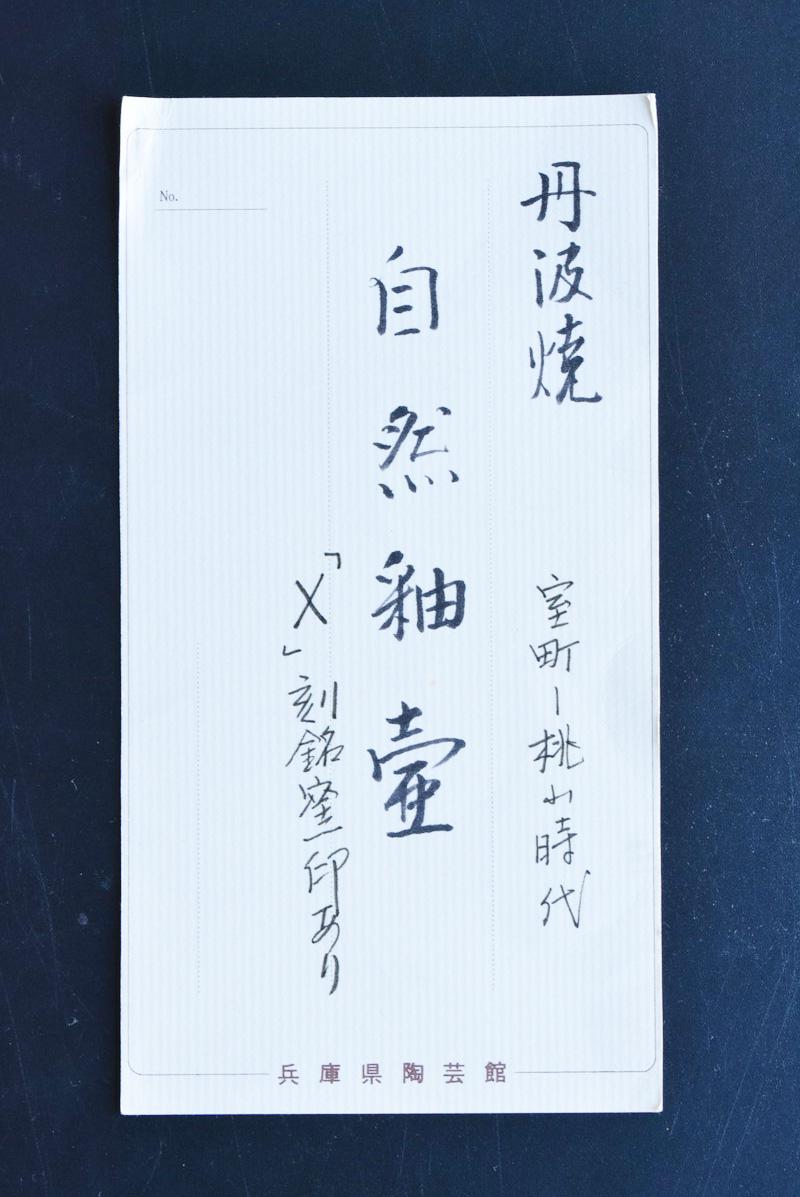 丹波焼
室町ー桃山時代
自然釉壷
「X」刻銘窯印あり
No.
兵庫県陶芸館